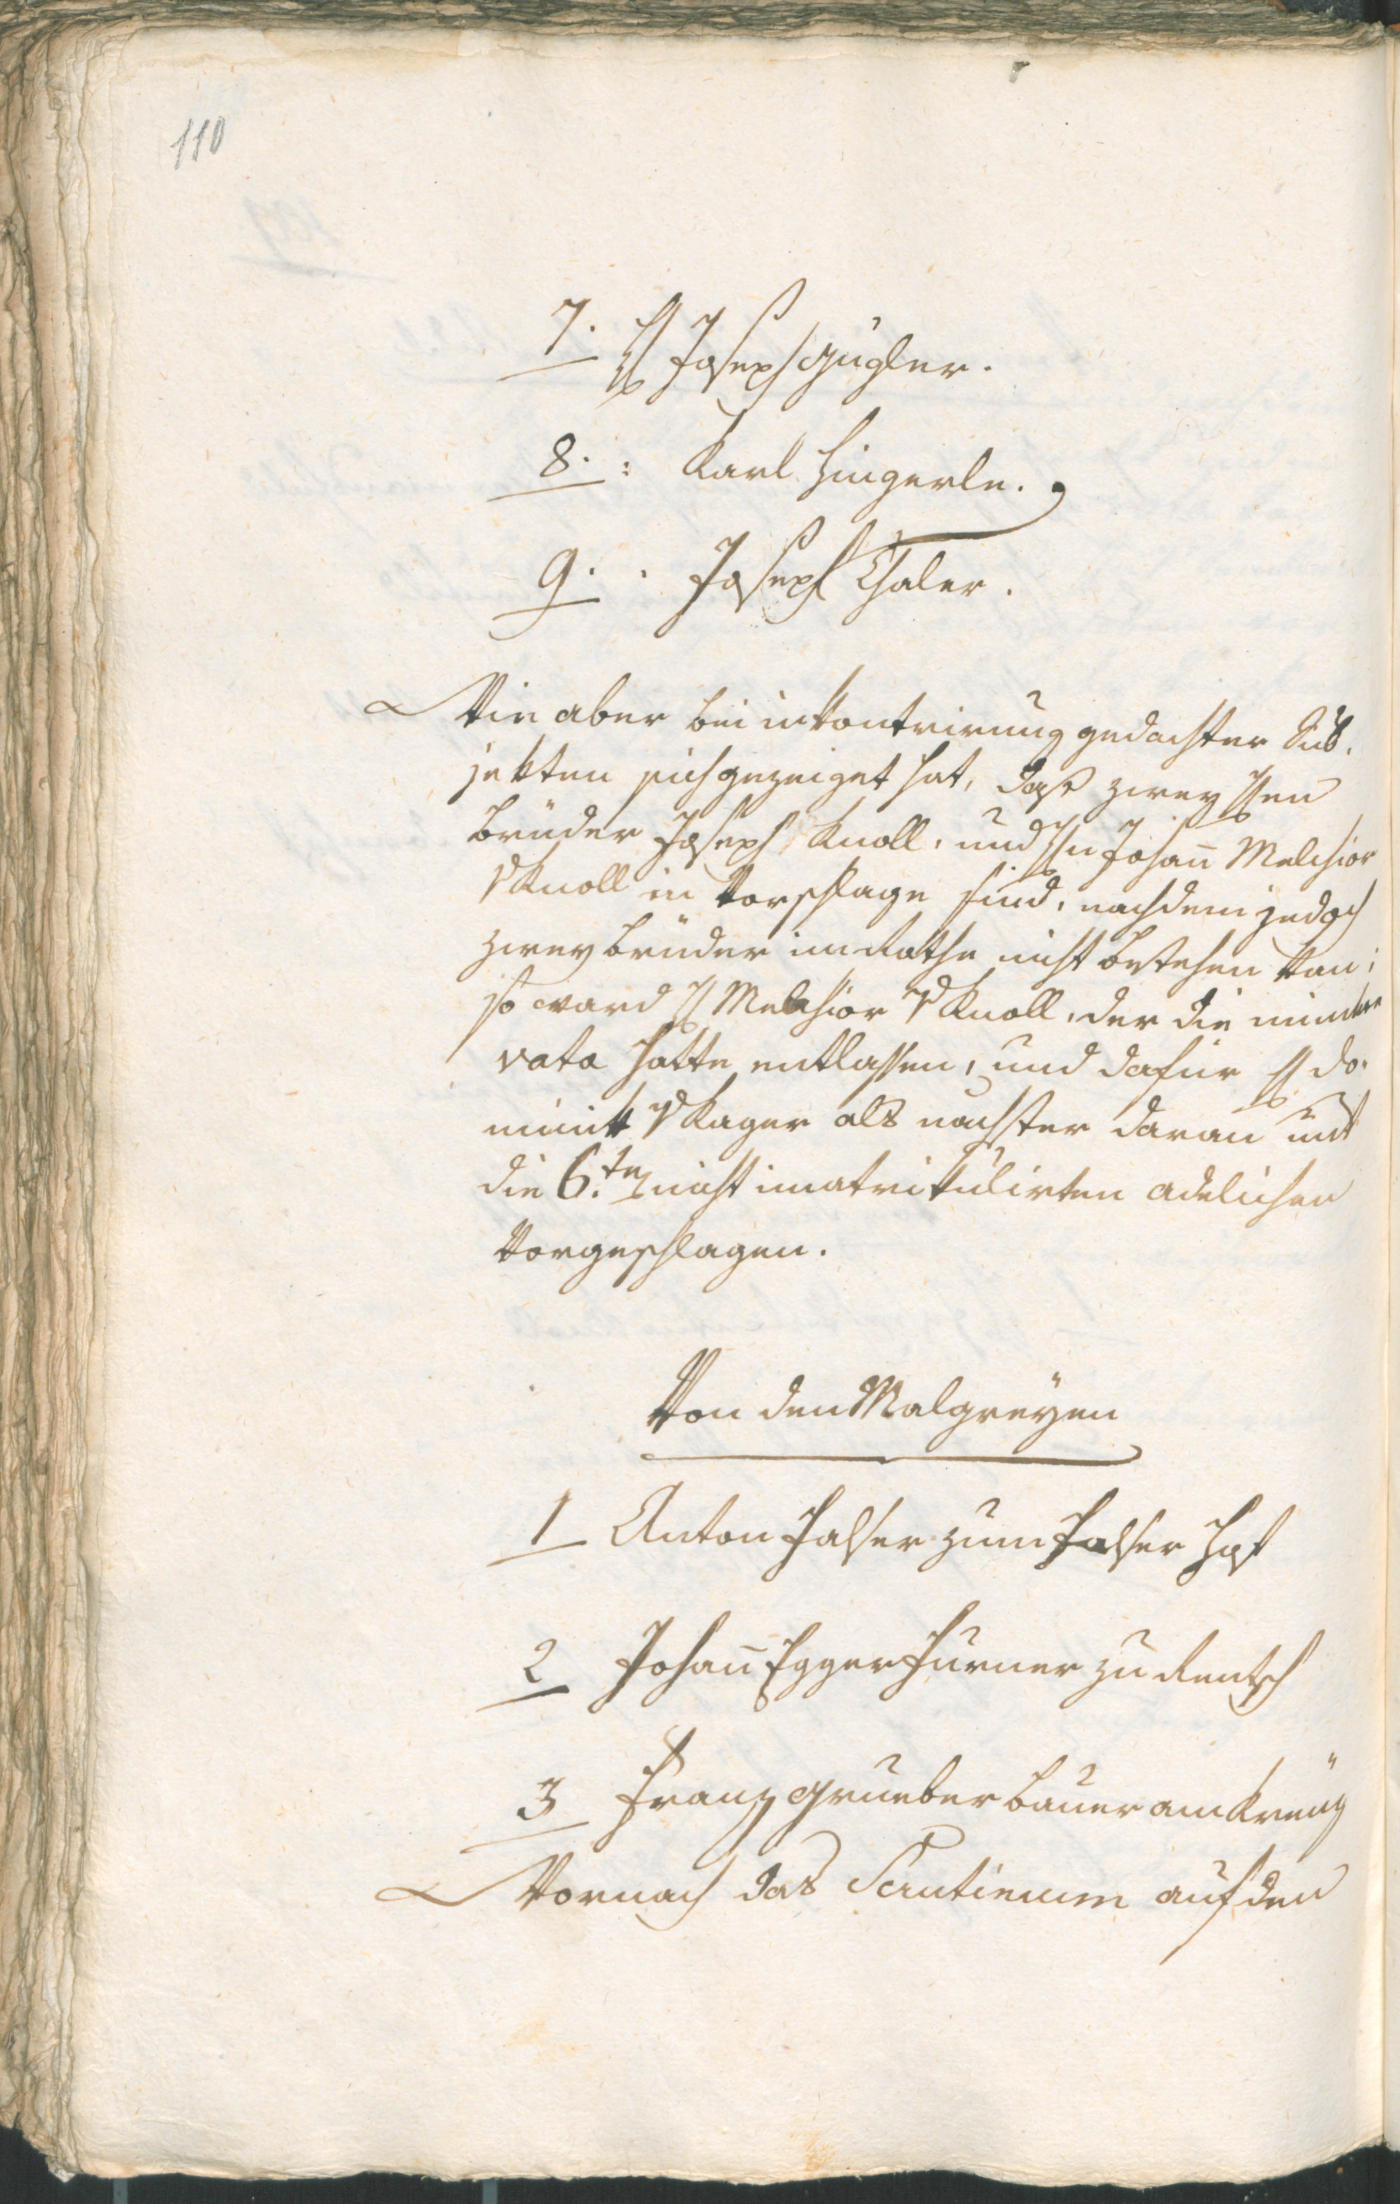 110
7. H Joseph Gugler.
8. : Karl Hingerle.
9. . Joseph Thaler.
Wie aber bei inkontrirung gedachter Sub¬
jekten sich gezeiget hat, daß zwey Hen
brüder Joseph Knoll, und Hn Johann Melchior
v Knoll in Vorschlage sind, nachdem jedoch
zwey brüder im Rathe nicht bestehen kan;
so ward H Melchior v Knoll, der die mindere
vota hatte entlassen, und dafür H Do¬
minik v Kager als nachster daran mit
die 6.te nicht imatrikulirten adelichen
vorgeschlagen.
Von den Malgreyen
1 Anton Halser zum Halser Hof
2 Johann Egger Hurner zu Rentsch
3 Franz Grueber Bauer am Kreuz
Vornach das Scrutinium auf den